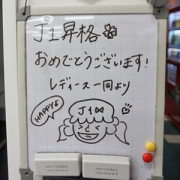 J1昇格
おめでとうございます!
レディース一同より
HAPPY♪
J1